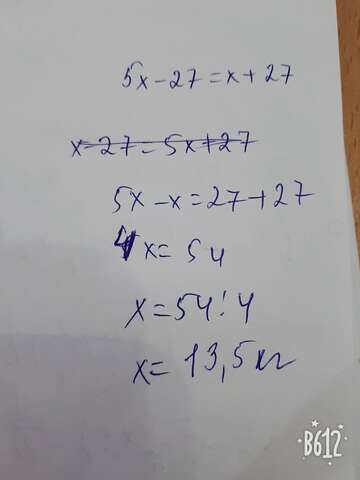 5x-27=x+27
x-27=5x+27
5x-x=27+27
4x=54
x=54:4
x=13,5кг
B612